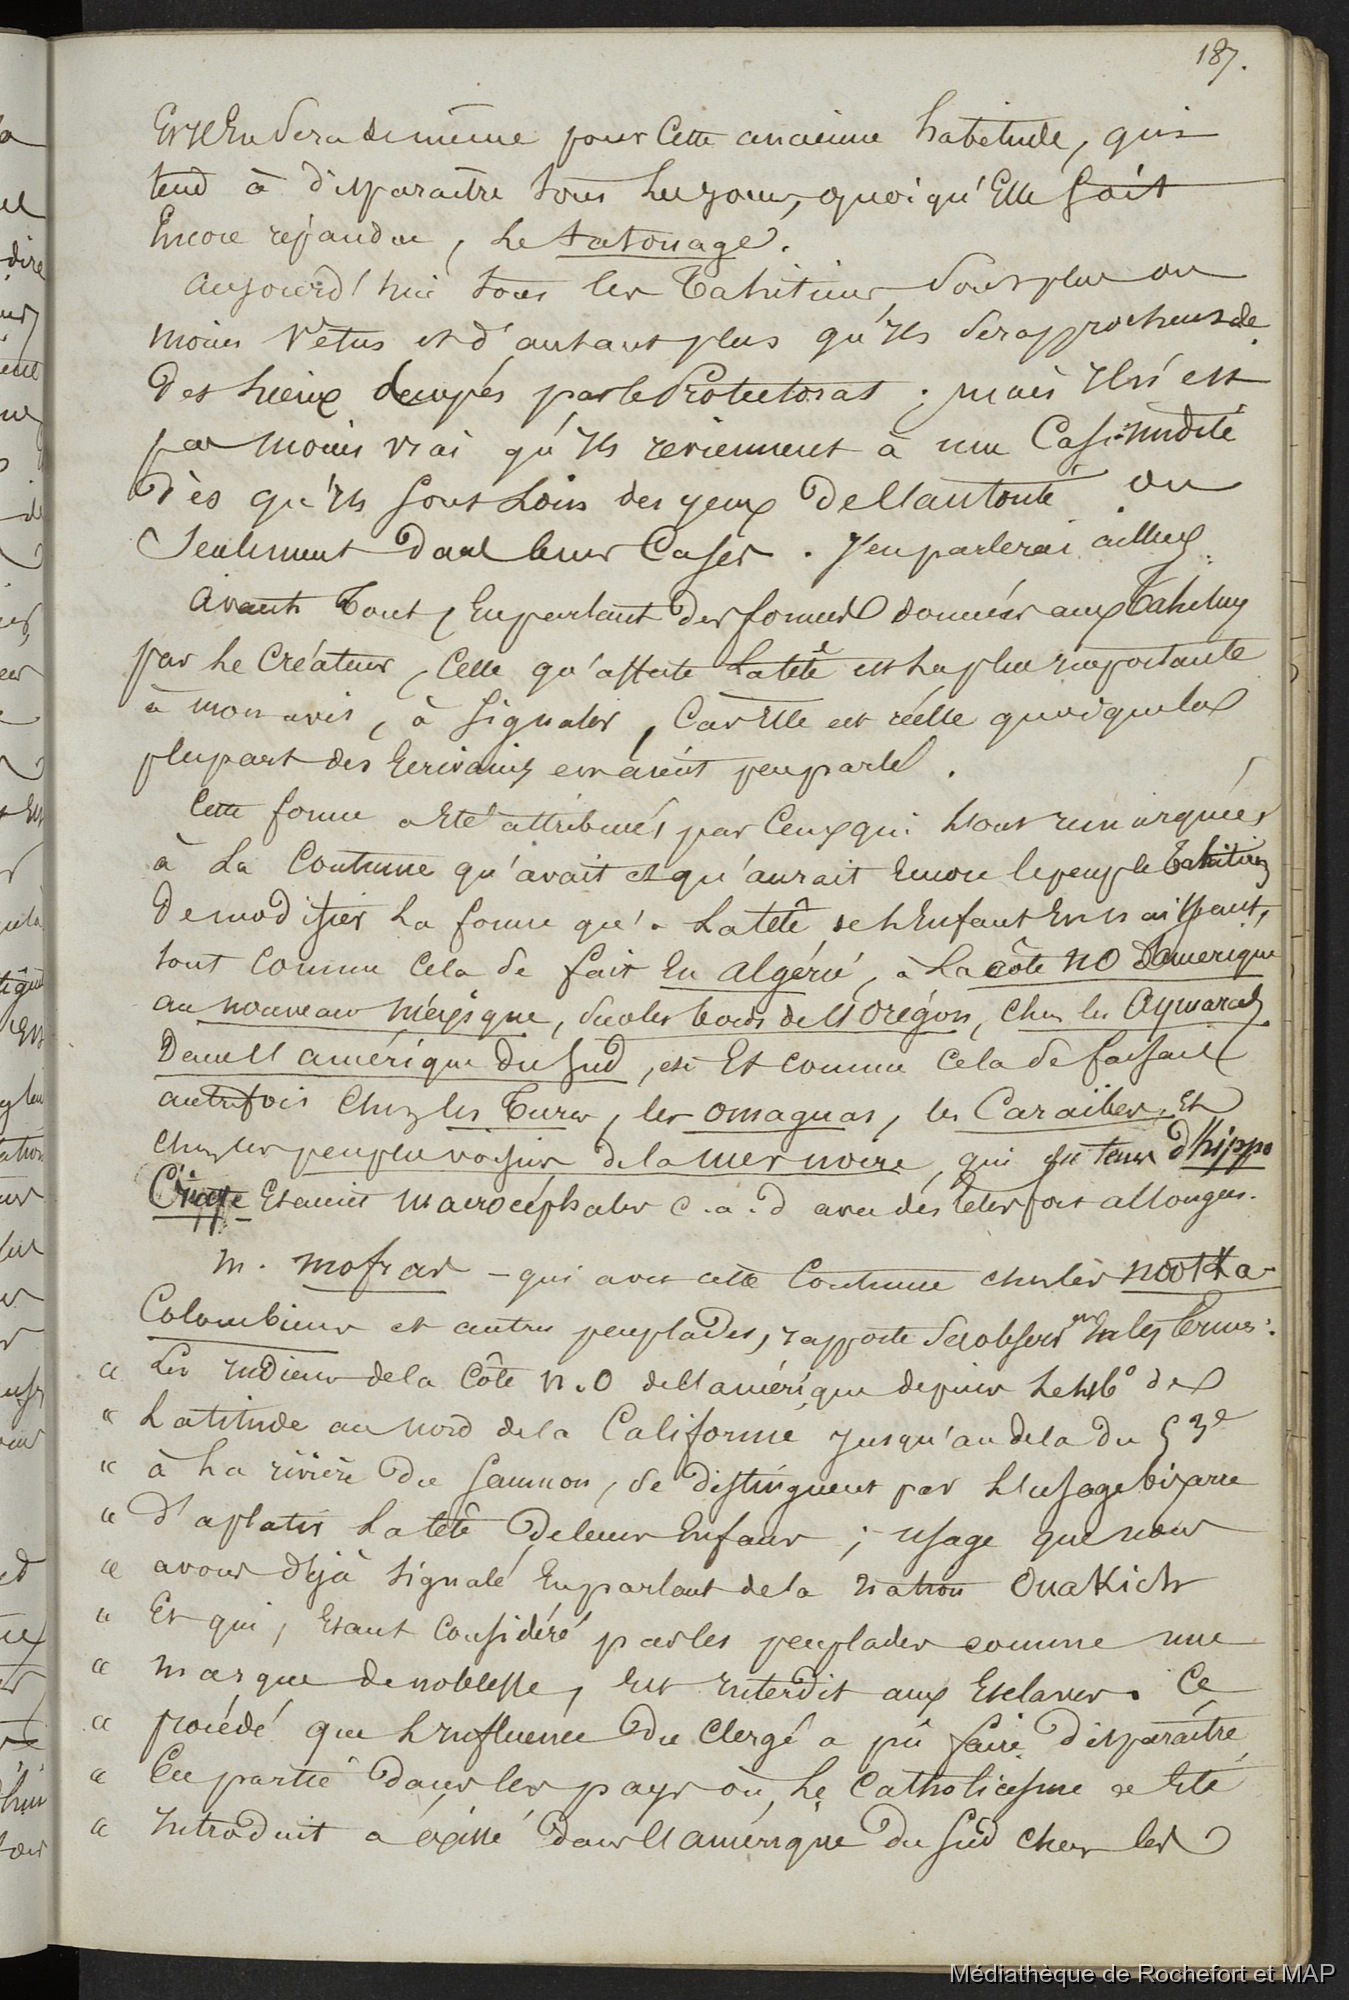 187.
Et il en sera de même pour cette ancienne habitude, qui
tend à disparaitre tous les jours, quoiqu'Elle soit
Encore répandue, le tatouage.
aujourd'hui tous les Tahitiens sont plus ou
moins vêtus et d'autant plus qu'ils se rapprochent de
des lieux occupés par le Protectorat ; mais il n'est
pas moins vrai qu'ils reviennent à une quasi-nudité
Dès qu'ils sont loin des yeux de l'autorité ou
Seulement dans leurs Cases. J'en parlerai ailleurs.
Avant Tout, En parlant des formes données aux Tahitiens
par le Créateur, Celle qu'affecte la tête est la plus importante
à mon avis, à signaler, Car Elle est réelle quoique la
plupart des Ecrivains en aient peu parlé.
Cette forme a Eté attribuée par Ceux qui l'ont remarquée
à la Coutume qu'avait et qu'aurait Encore le peuple Tahitien
de modifier la forme qu'a la tête de l'Enfant En naissant,
tout comme cela se fait En Algérie, à la côte NO d'amerique
au nouveau méxique, sur les bords de l'Orégon, chez les Aymaras
Dans l'amérique du Sud, et Et comme cela se faisait
autrefois Chez les Turcs, les omaguas, les Caraïbes, Et
chez les peuples voisins de la mer noire, qui du tems d'hippo
Crate Etaient macrocéphales c.a.d avec des têtes fort allongées.
M. Mofras - qui avec cette Coutume chez les nootka-
Colombiens et autres peuplades, rapporte ses observons En les termes :
" Les indiens de la Côte N.O de l'amérique depuis le 46° de
" Latitude au nord de la Californie jusqu'au dela du 53e
" à La rivière du Saumon, se distinguent par l'usage bizarre
" D'aplatir la tête de leurs Enfans ; usage que nous
" avons déjà signalé En parlant de la nation Ouakich
" Et qui, Etant Considéré par les peuplades comme une
" marque de noblesse, Est interdit aux Esclaves. Ce
" procédé que l'influence du Clergé a pû faire disparaître
" En partie dans les pays où le Catholicisme a Eté
" Introduit a éxisté dans l'amérique du Sud chez les
Médiathèque de Rochefort et MAP